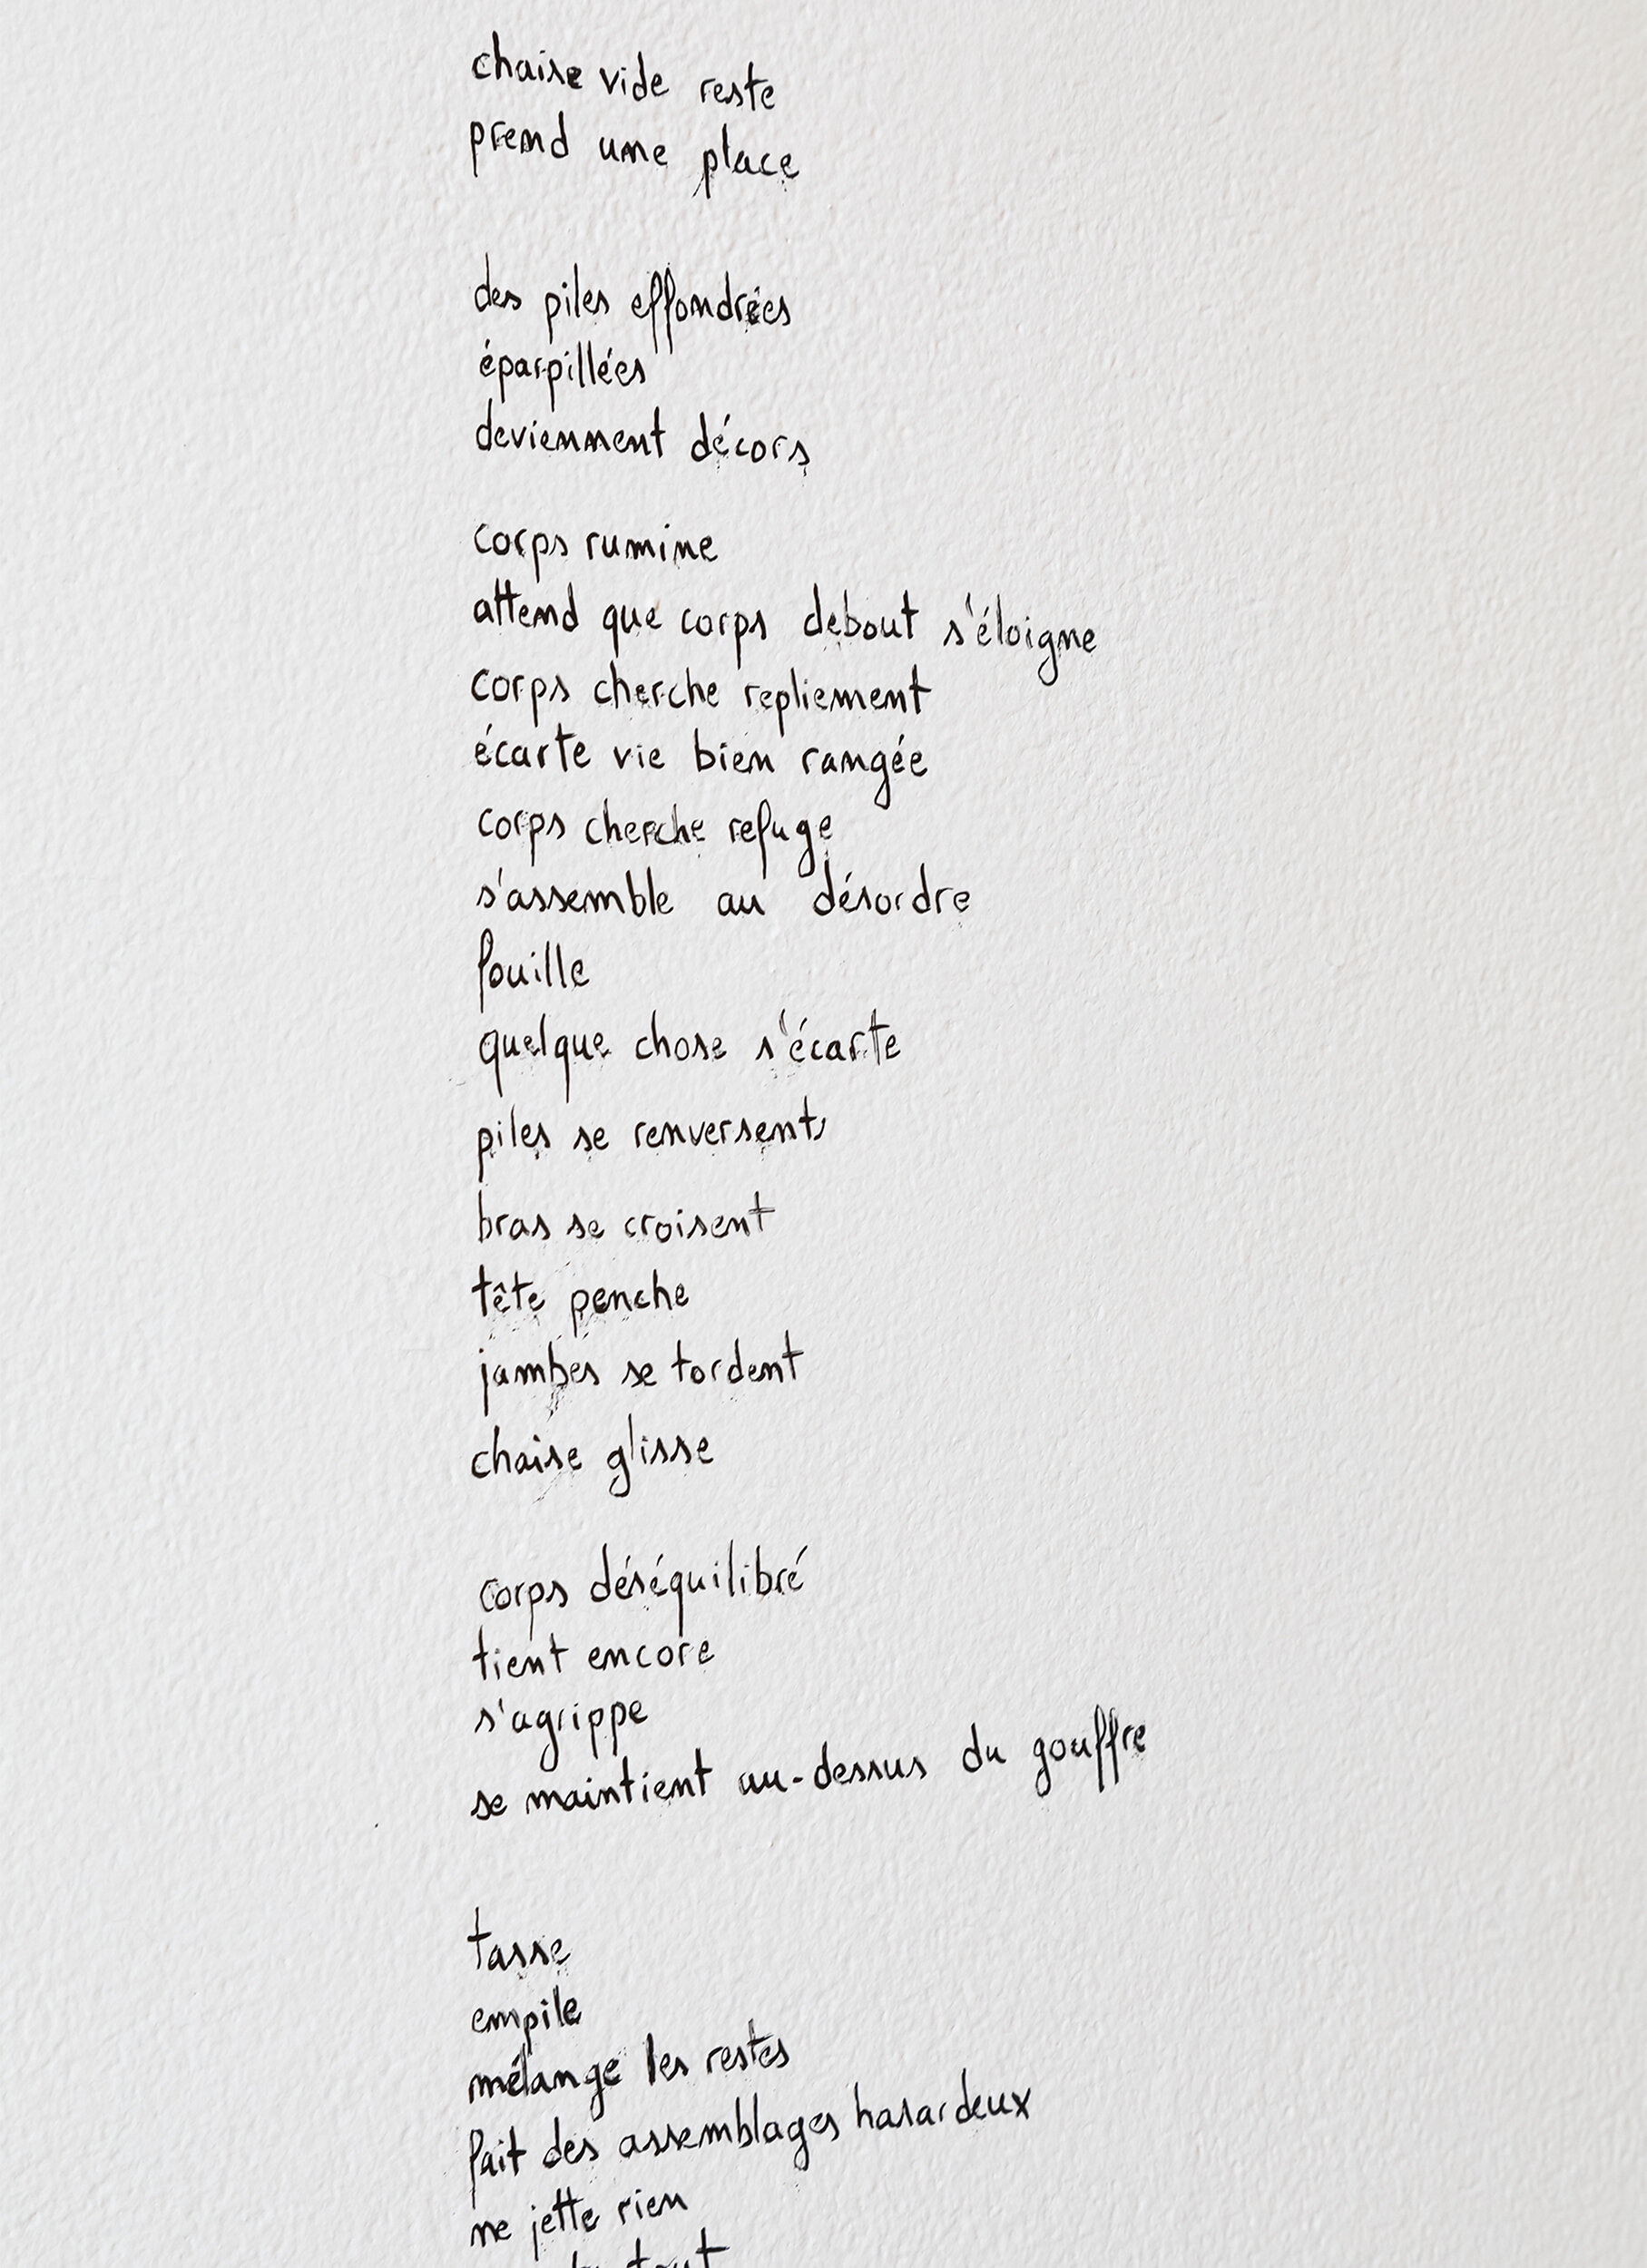 chaise vide reste
prend une place
des piles effondrées
éparpillées
deviennent décors
corps rumine
attend que corps debout s'éloigne
corps cherche repliement
écarte vie bien rangée
corps cherche refuge
s'assemble au désordre
fouille
quelque chose s'écarte
piles se renversent
bras se croisent
tête penche
jambes se tordent
chaise glisse
corps déséquilibré
tient encore
s'agrippe
se maintient au-dessus du gouffre
tasse
empile
mélange les restes
fait des assemblages hasardeux
ne jette rien
tout